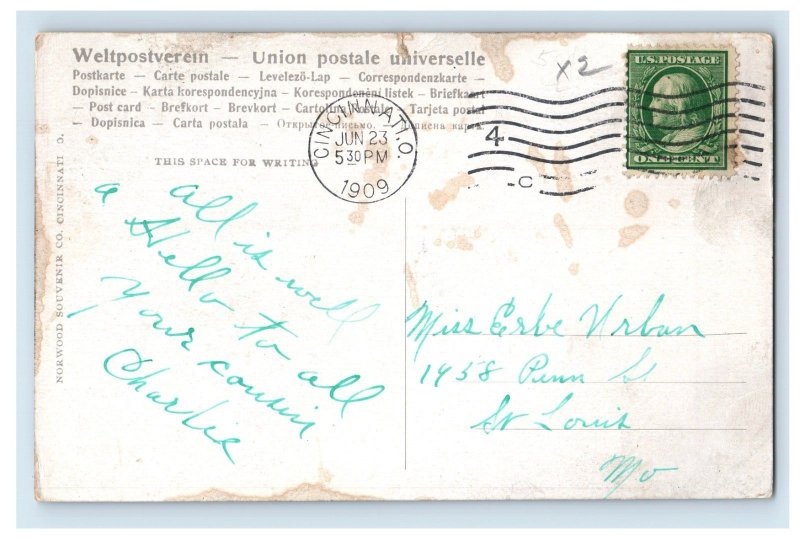 Weltpostverein — Union postale universelle
Postkarte — Carte postale — Levelező-Lap — Correspondenzkarte —
Dopisnice — Karta korespondencyjna — Korespondenční listek — Briefkaart
— Post card — Brefkort — Brevkort — Cartolina postale — Tarjeta postal
— Dopisnica — Carta postala — Открытое письмо.
THIS SPACE FOR WRITING
CINCINNATI, O.
JUN 23
5 30 PM
1909
4
C
X2
U.S. POSTAGE
ONE CENT
NORWOOD SOUVENIR CO. CINCINNATI O.
all is well
a Hello to all
your cousin
Charlie
Miss Erbe Urban
1458 Penn St
St Louis
Mo